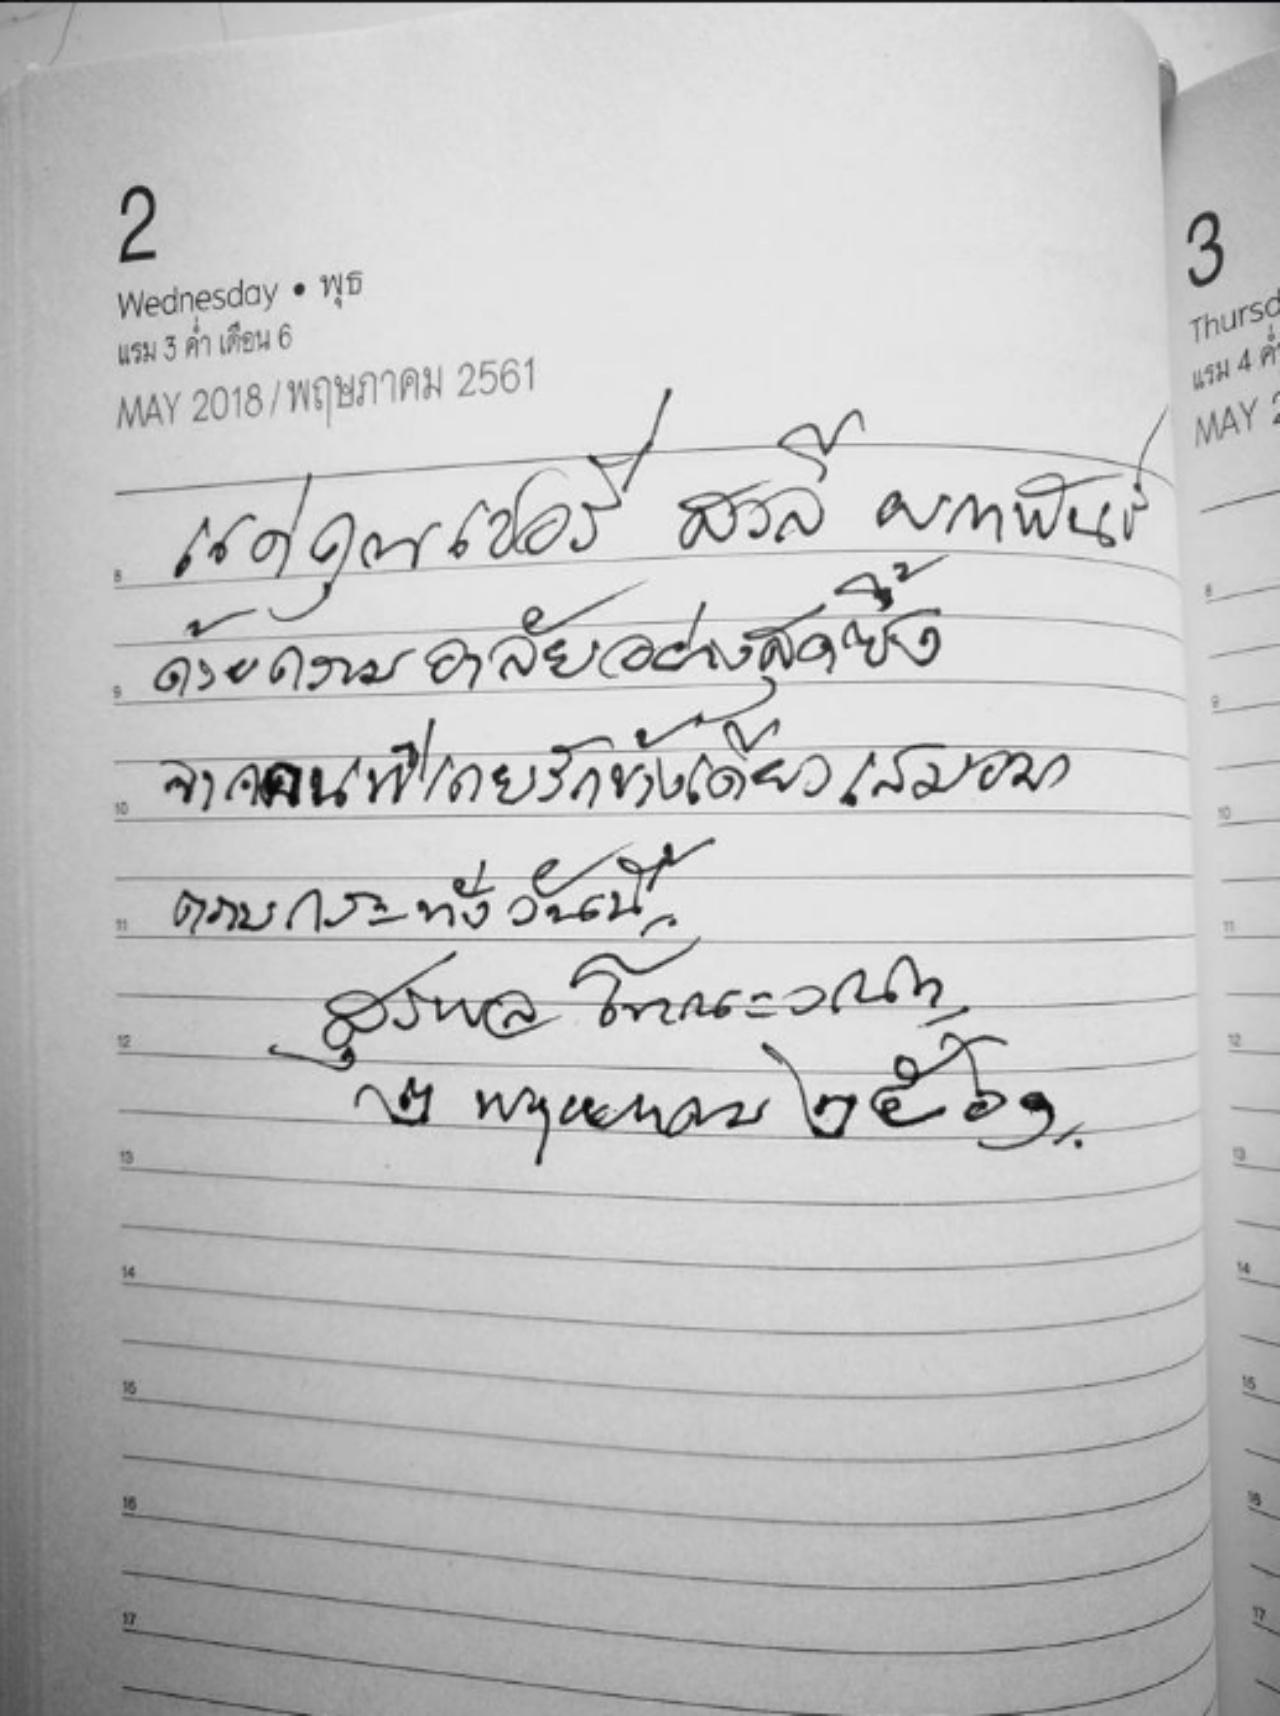 2
Wednesday • พุธ
แรม 3 ค่ำ เดือน 6
MAY 2018/พฤษภาคม 2561
แด่คุณเชอรี่ สวลี ผกาพันธุ์
ด้วยความอาลัยอย่างสุดซึ้ง
จากคนที่เคยรักข้างเดียวเสมอมา
ตราบกระทั่งวันนี้.
สุรพล โทณะวณิก
๒ พฤษภาคม ๒๕๖๑.
8
9
10
11
12
13
14
15
16
17
3
Thursd
แรม 4 ค่ำ
MAY 2
8
9
10
11
12
13
14
15
16
17